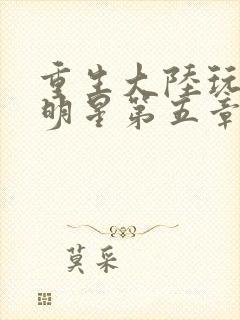 重生大陸玩
明星第五章
莫采